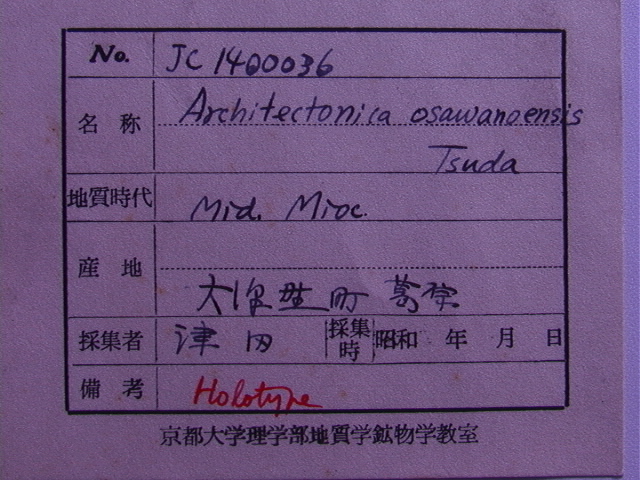 No. JC 1400036
名称 Architectonica osawanoensis
Tsuda
地質時代 Mid. Mioc.
産地
大沢野町 葛原
採集者 津田 採集時 昭和 年 月 日
備考 Holotype
京都大学理学部地質学鉱物学教室